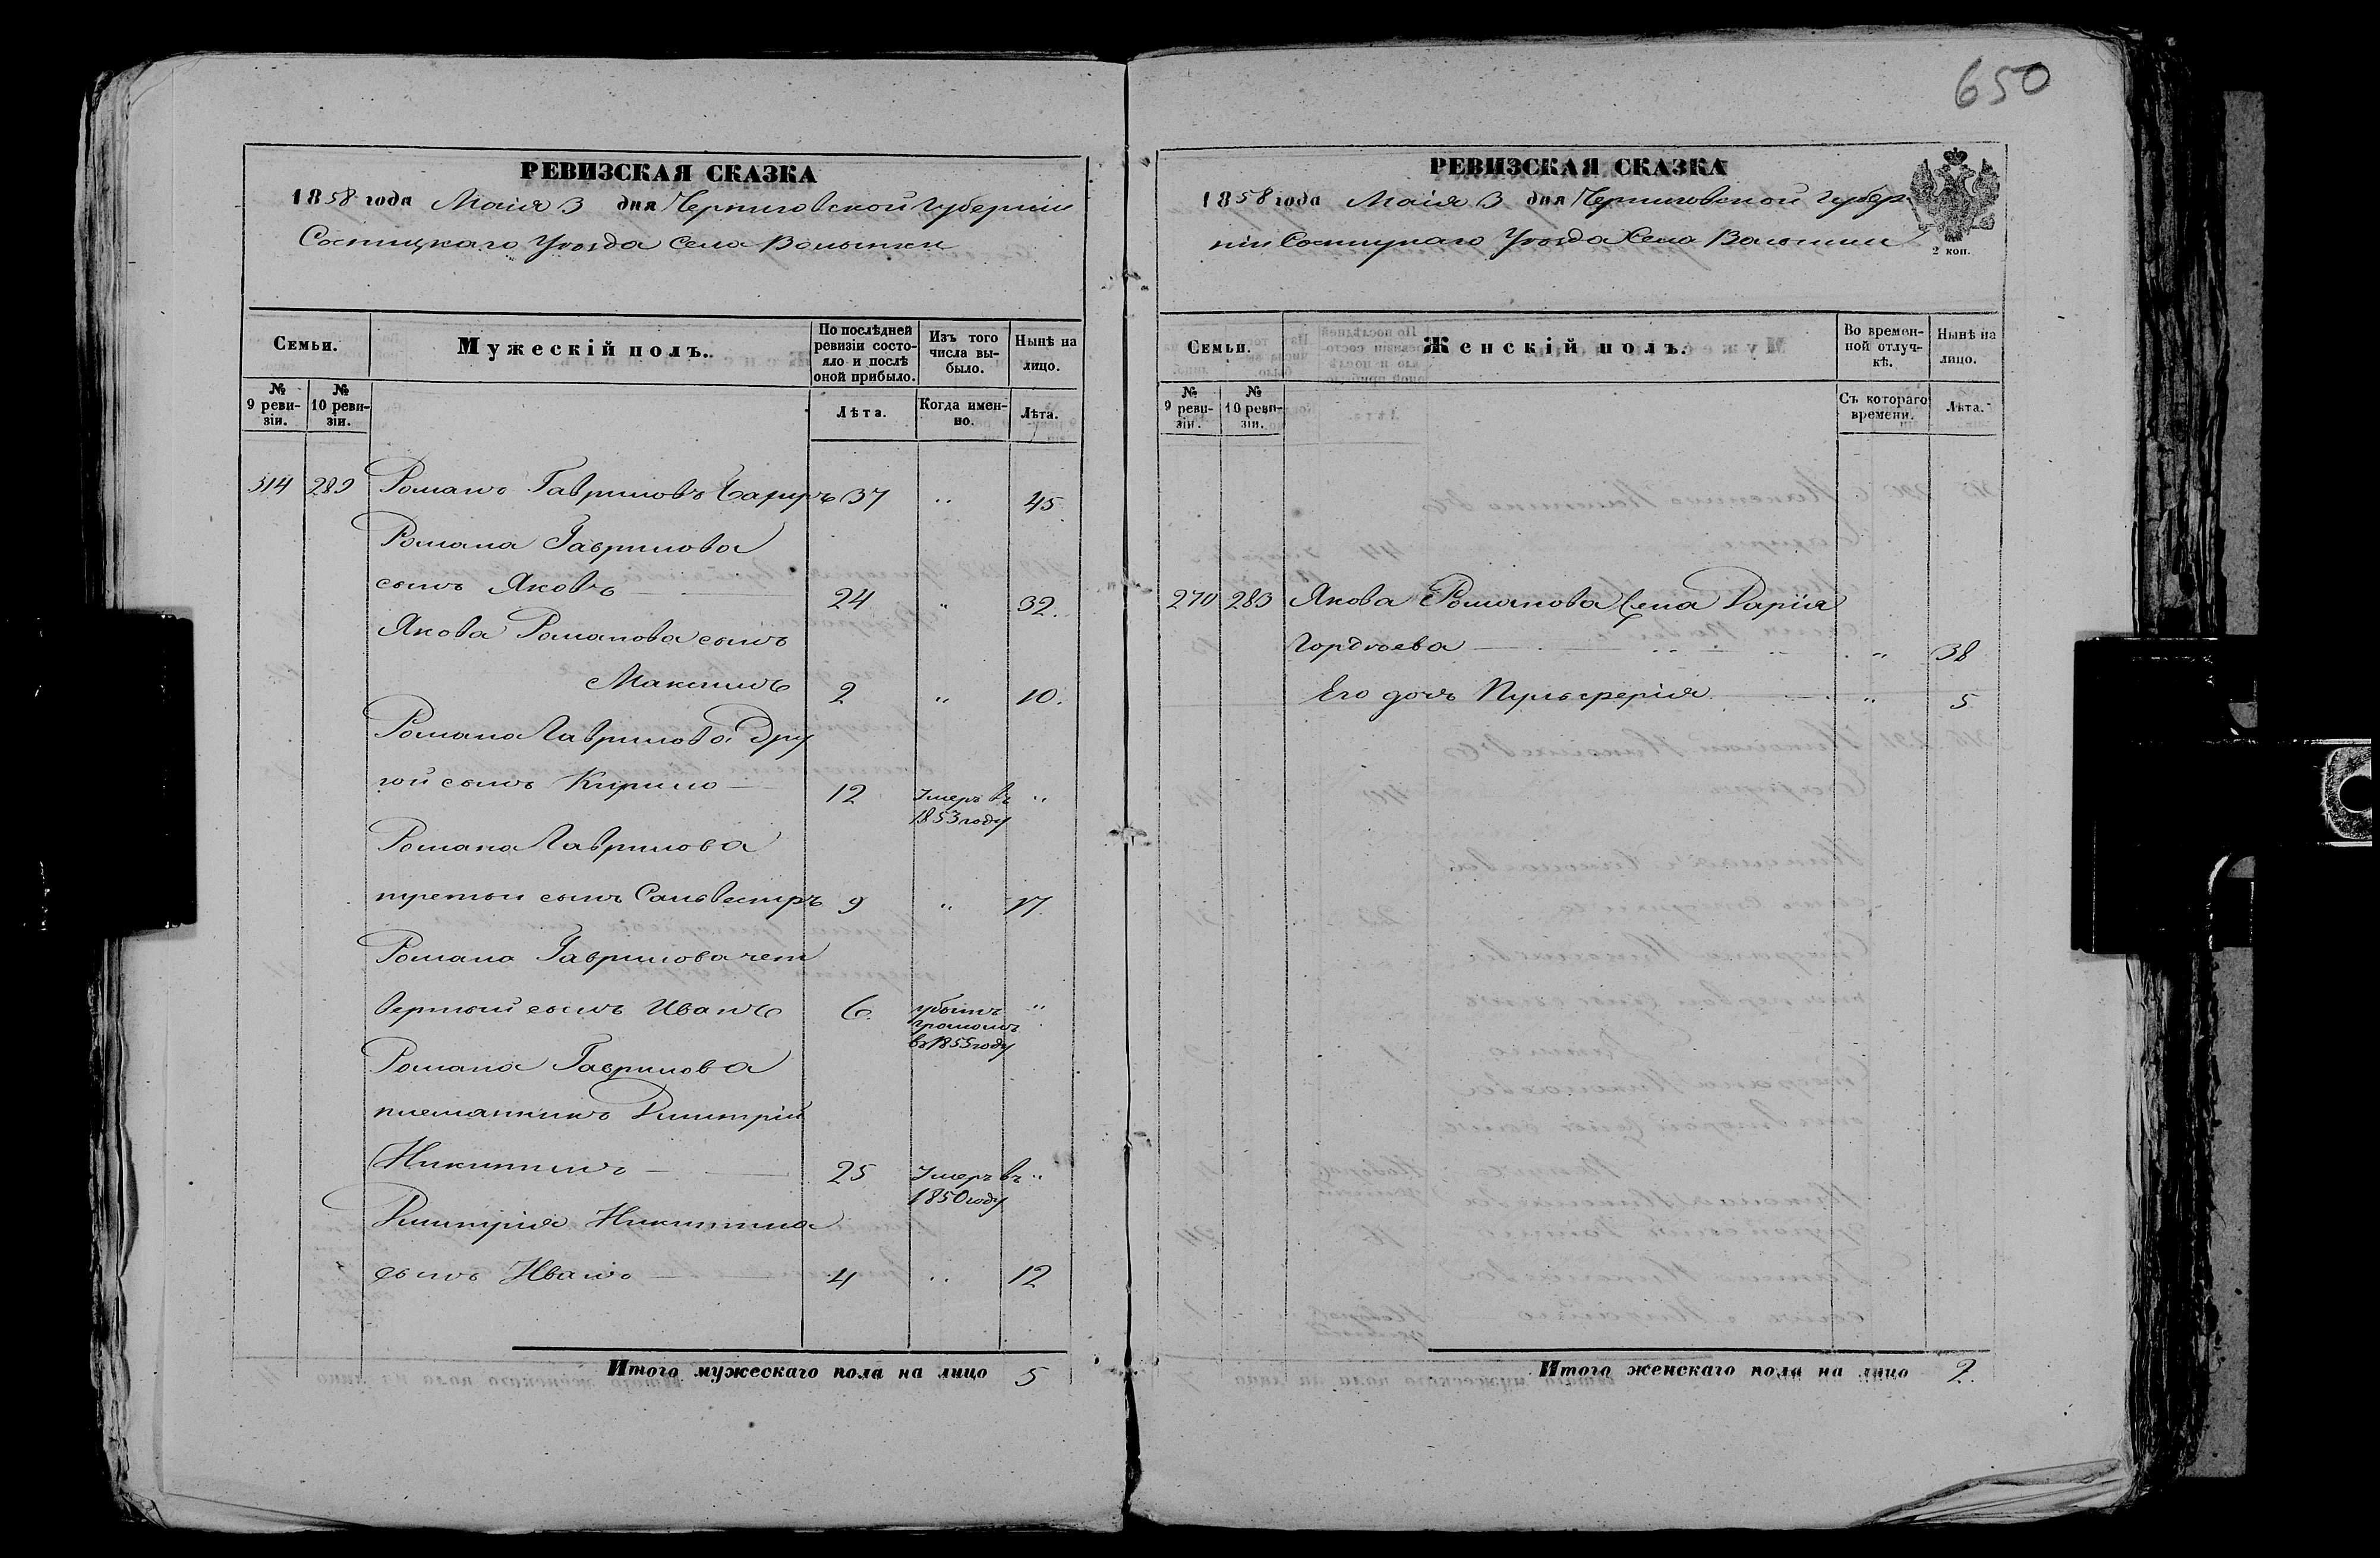 650
РЕВИЗСКАЯ СКАЗКА
1858 года Маія 3 дня Черниговской Губерніи
Сосницкаго Уѣзда Села Волынки
Семьи.
Мужескій полъ.
По послѣдней ревизіи состояло и послѣ оной прибыло.
Изъ того числа выбыло.
Нынѣ на лицо.
№ 9 ревизіи.
№ 10 ревизіи.
Лѣта.
Когда именно.
Лѣта.
514 289 Романъ Гавриловъ 37 „ 45
Романа Гаврилова
сынъ Яковъ 24 „ 32.
Якова Романова сынъ
Максимъ 2 „ 10.
Романа Гаврилова дру
гой сынъ Кирило 12 Умеръ въ „
1853 году
Романа Гаврилова
третьи сынъ Сильвестръ 9 „ 17.
Романа Гаврилова чет
вертый сынъ Иванъ 6 убытъ „
громомъ
въ 1855 году
Романа Гаврилова
племянникъ Дмитрій
Никитинъ 25 Умеръ въ „
1850 году
Дмитрія Никитина
сынъ Иванъ 4 „ 12
Итого мужескаго пола на лицо 5
РЕВИЗСКАЯ СКАЗКА
1858 года Маія 3 дня Черниговской Губер
ніи Сосницкаго Уѣзда Села Волынки
2 коп.
Семьи.
Женскій полъ.
Во временной отлучкѣ.
Нынѣ на лицо.
№ 9 ревизіи.
№ 10 ревизіи.
Съ котораго времени.
Лѣта.
270 283 Якова Романова жена Дарія
Гордѣева „ 38
Его дочь Пульферія „ 5
Итого женскаго пола на лицо 2.